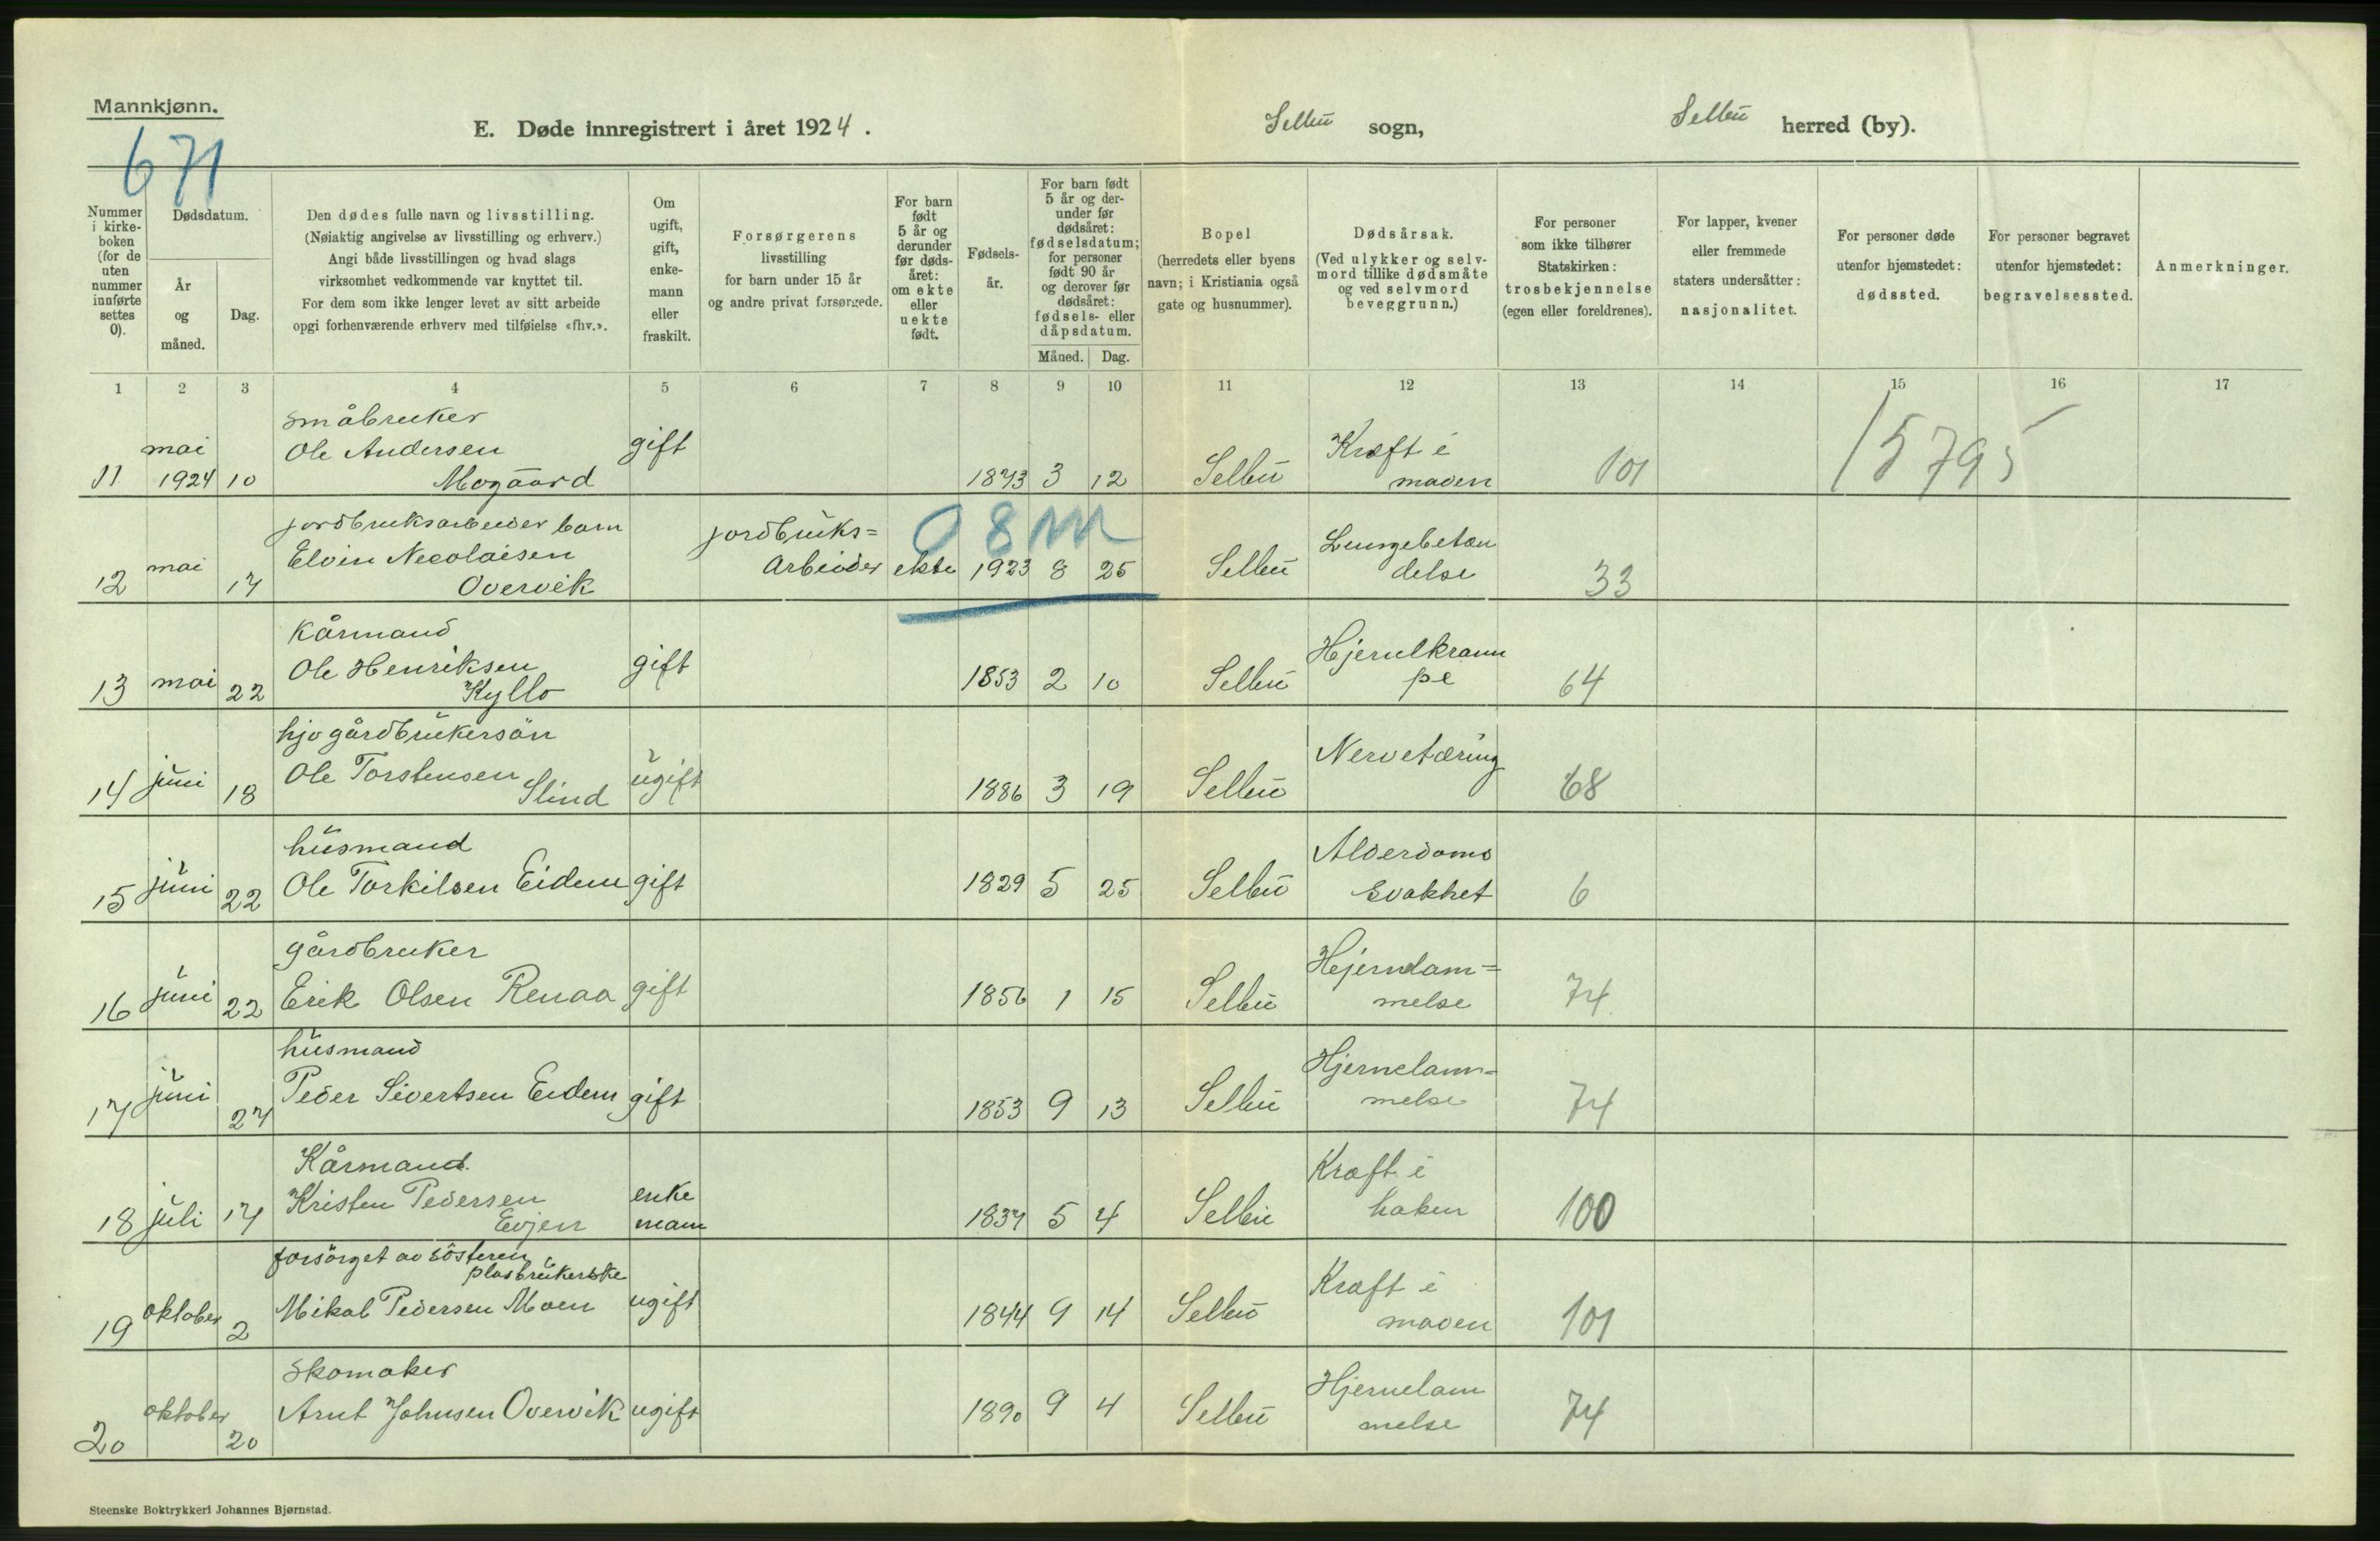 Mannkjønn.
671
E. Døde innregistrert i året 1924. Selbu sogn, Selbu herred (by).
Nummer i kirkeboken (for de uten nummer innførte settes 0).
Dødsdatum.
År og måned.
Dag.
Den dødes fulle navn og livsstilling.
(Nøiaktig angivelse av livsstilling og erhverv.)
Angi både livsstillingen og hvad slags
virksomhet vedkommende var knyttet til.
For dem som ikke lenger levet av sitt arbeide
opgi forhenværende erhverv med tilføielse «fhv.».
Om ugift, gift, enkemann eller fraskilt.
Forsørgerens
livsstilling
for barn under 15 år
og andre privat forsørgede.
For barn født 5 år og derunder før dødsåret: om ekte eller uekte født.
Fødselsår.
For barn født 5 år og derunder før dødsåret: fødselsdatum; for personer født 90 år og derover før dødsåret: fødsels- eller dåpsdatum.
Måned. Dag.
Bopel
(herredets eller byens
navn; i Kristiania også
gate og husnummer).
Dødsårsak.
(Ved ulykker og selvmord tillike dødsmåte
og ved selvmord
beveggrunn.)
For personer
som ikke tilhører
Statskirken:
trosbekjennelse
(egen eller foreldrenes).
For lapper, kvener
eller fremmede
staters undersåtter:
nasjonalitet.
For personer døde
utenfor hjemstedet:
dødssted.
For personer begravet
utenfor hjemstedet:
begravelsessted.
Anmerkninger.
1 2 3 4 5 6 7 8 9 10 11 12 13 14 15 16 17
småbruker
mai Ole Andersen gift Kræft i
11 1924 10 Mogaard 1873 3 12 Selbu maven 101 15795
jordbruksarbeider barn jordbruks= 08M Lungebetæn
12 mai 17 Elvin Nicolaisen Overvik Arbeider ekte 1923 8 25 Selbu delse 33
Kårmand
Ole Henriksen gift Hjernekram
13 mai 22 Kyllo 1853 2 10 Selbu pe 64
hjv gårdbrukersøn
Ole Torstensen ugift Nervetæring
14 juni 18 Slind 1886 3 19 Selbu 68
husmand Alderdoms
15 juni 22 Ole Torkilsen Eidem gift 1829 5 25 Selbu svakhet 6
gårdbruker Hejerndam=
16 juni 22 Erik Olsen Renaa gift 1856 1 15 Selbu melse 74
husmand Hjernelam=
17 juni 27 Peder Sivertsen Eidem gift 1853 9 13 Selbu melse 74
Kårmand Kræft i
Kristen Pedersen enke
18 juli 17 Evjen mann 1837 5 4 Selbu haken 100
forsørget av søsteren
plasbrukerske Kræft i
19 oktober 2 Mikal Pedersen Moen ugift 1844 9 14 Selbu maven 101
Skomaker Hjernelam
20 oktober 20 Arnt Johnsen Overvik ugift 1890 9 4 Selbu melse 74
Steenske Boktrykkeri Johannes Bjørnstad.